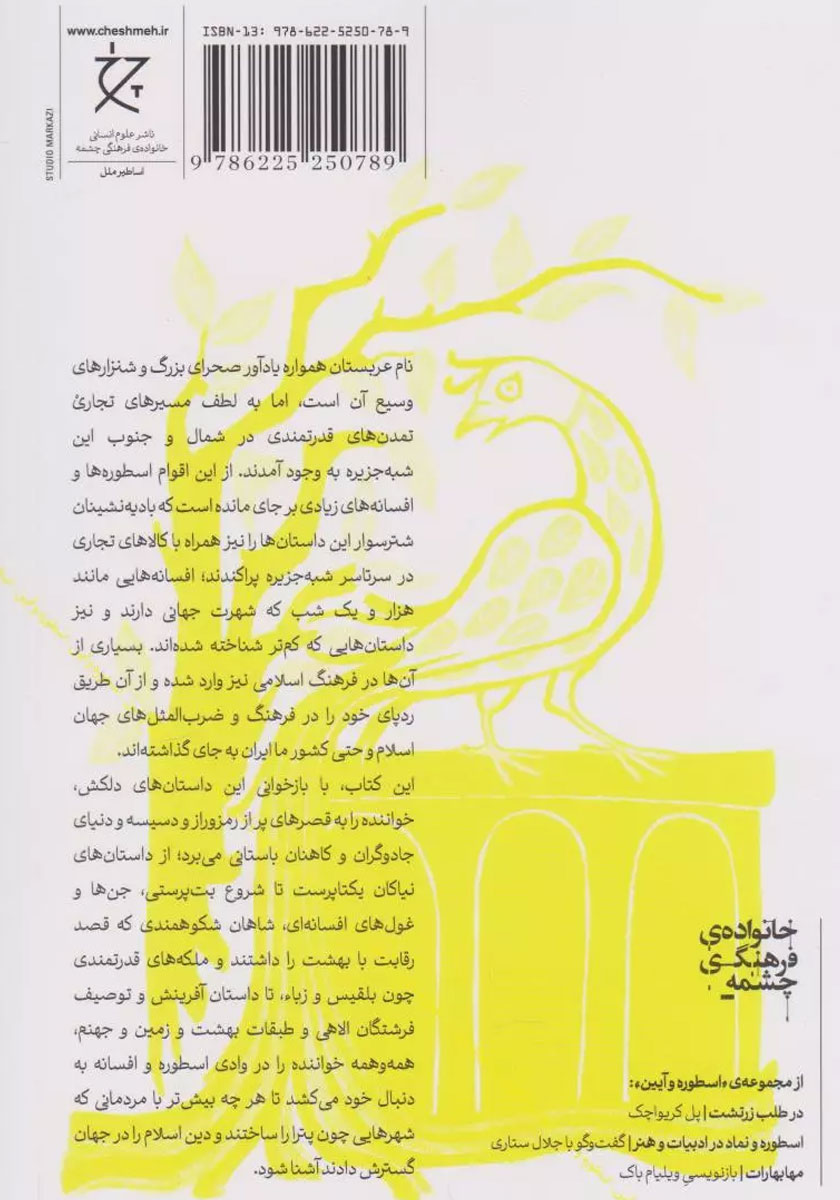 www.cheshmeh.ir
ISBN-13: 978-622-5250-78-9
ناشر علوم انسانی
خانواده‌ی فرهنگی چشمه
اساطیر ملل
STUDIO MARKAZI
9 786225 250789
نام عربستان همواره یادآور صحرای بزرگ و شنزارهای
وسیع آن است، اما به لطف مسیرهای تجاریْ
تمدن‌های قدرتمندی در شمال و جنوب این
شبه‌جزیره به وجود آمدند. از این اقوام اسطوره‌ها و
افسانه‌های زیادی بر جای مانده است که بادیه‌نشینان
شترسوار این داستان‌ها را نیز همراه با کالاهای تجاری
در سرتاسر شبه‌جزیره پراکندند؛ افسانه‌هایی مانند
هزار و یک شب که شهرت جهانی دارند و نیز
داستان‌هایی که کم‌تر شناخته شده‌اند. بسیاری از
آن‌ها در فرهنگ اسلامی نیز وارد شده و از آن طریق
ردپای خود را در فرهنگ و ضرب‌المثل‌های جهان
اسلام و حتی کشور ما ایران به جای گذاشته‌اند.
این کتاب، با بازخوانی این داستان‌های دلکش،
خواننده را به قصرهای پر از رمزوراز و دسیسه و دنیای
جادوگران و کاهنان باستانی می‌برد؛ از داستان‌های
نیاکان یکتاپرست تا شروع بت‌پرستی، جن‌ها و
غول‌های افسانه‌ای، شاهان شکوهمندی که قصد
رقابت با بهشت را داشتند و ملکه‌های قدرتمندی
چون بلقیس و زباء، تا داستان آفرینش و توصیف
فرشتگان الاهی و طبقات بهشت و زمین و جهنم،
همه‌وهمه خواننده را در وادی اسطوره و افسانه به
دنبال خود می‌کشد تا هر چه بیش‌تر با مردمانی که
شهرهایی چون پترا را ساختند و دین اسلام را در جهان
گسترش دادند آشنا شود.
خانواده‌ی
فرهنگی
چشمه
از مجموعه‌ی «اسطوره و آیین»:
در طلب زرتشت | پل کریواچک
اسطوره و نماد در ادبیات و هنر | گفت‌وگو با جلال ستاری
مهابهارات | بازنویسیِ ویلیام باک